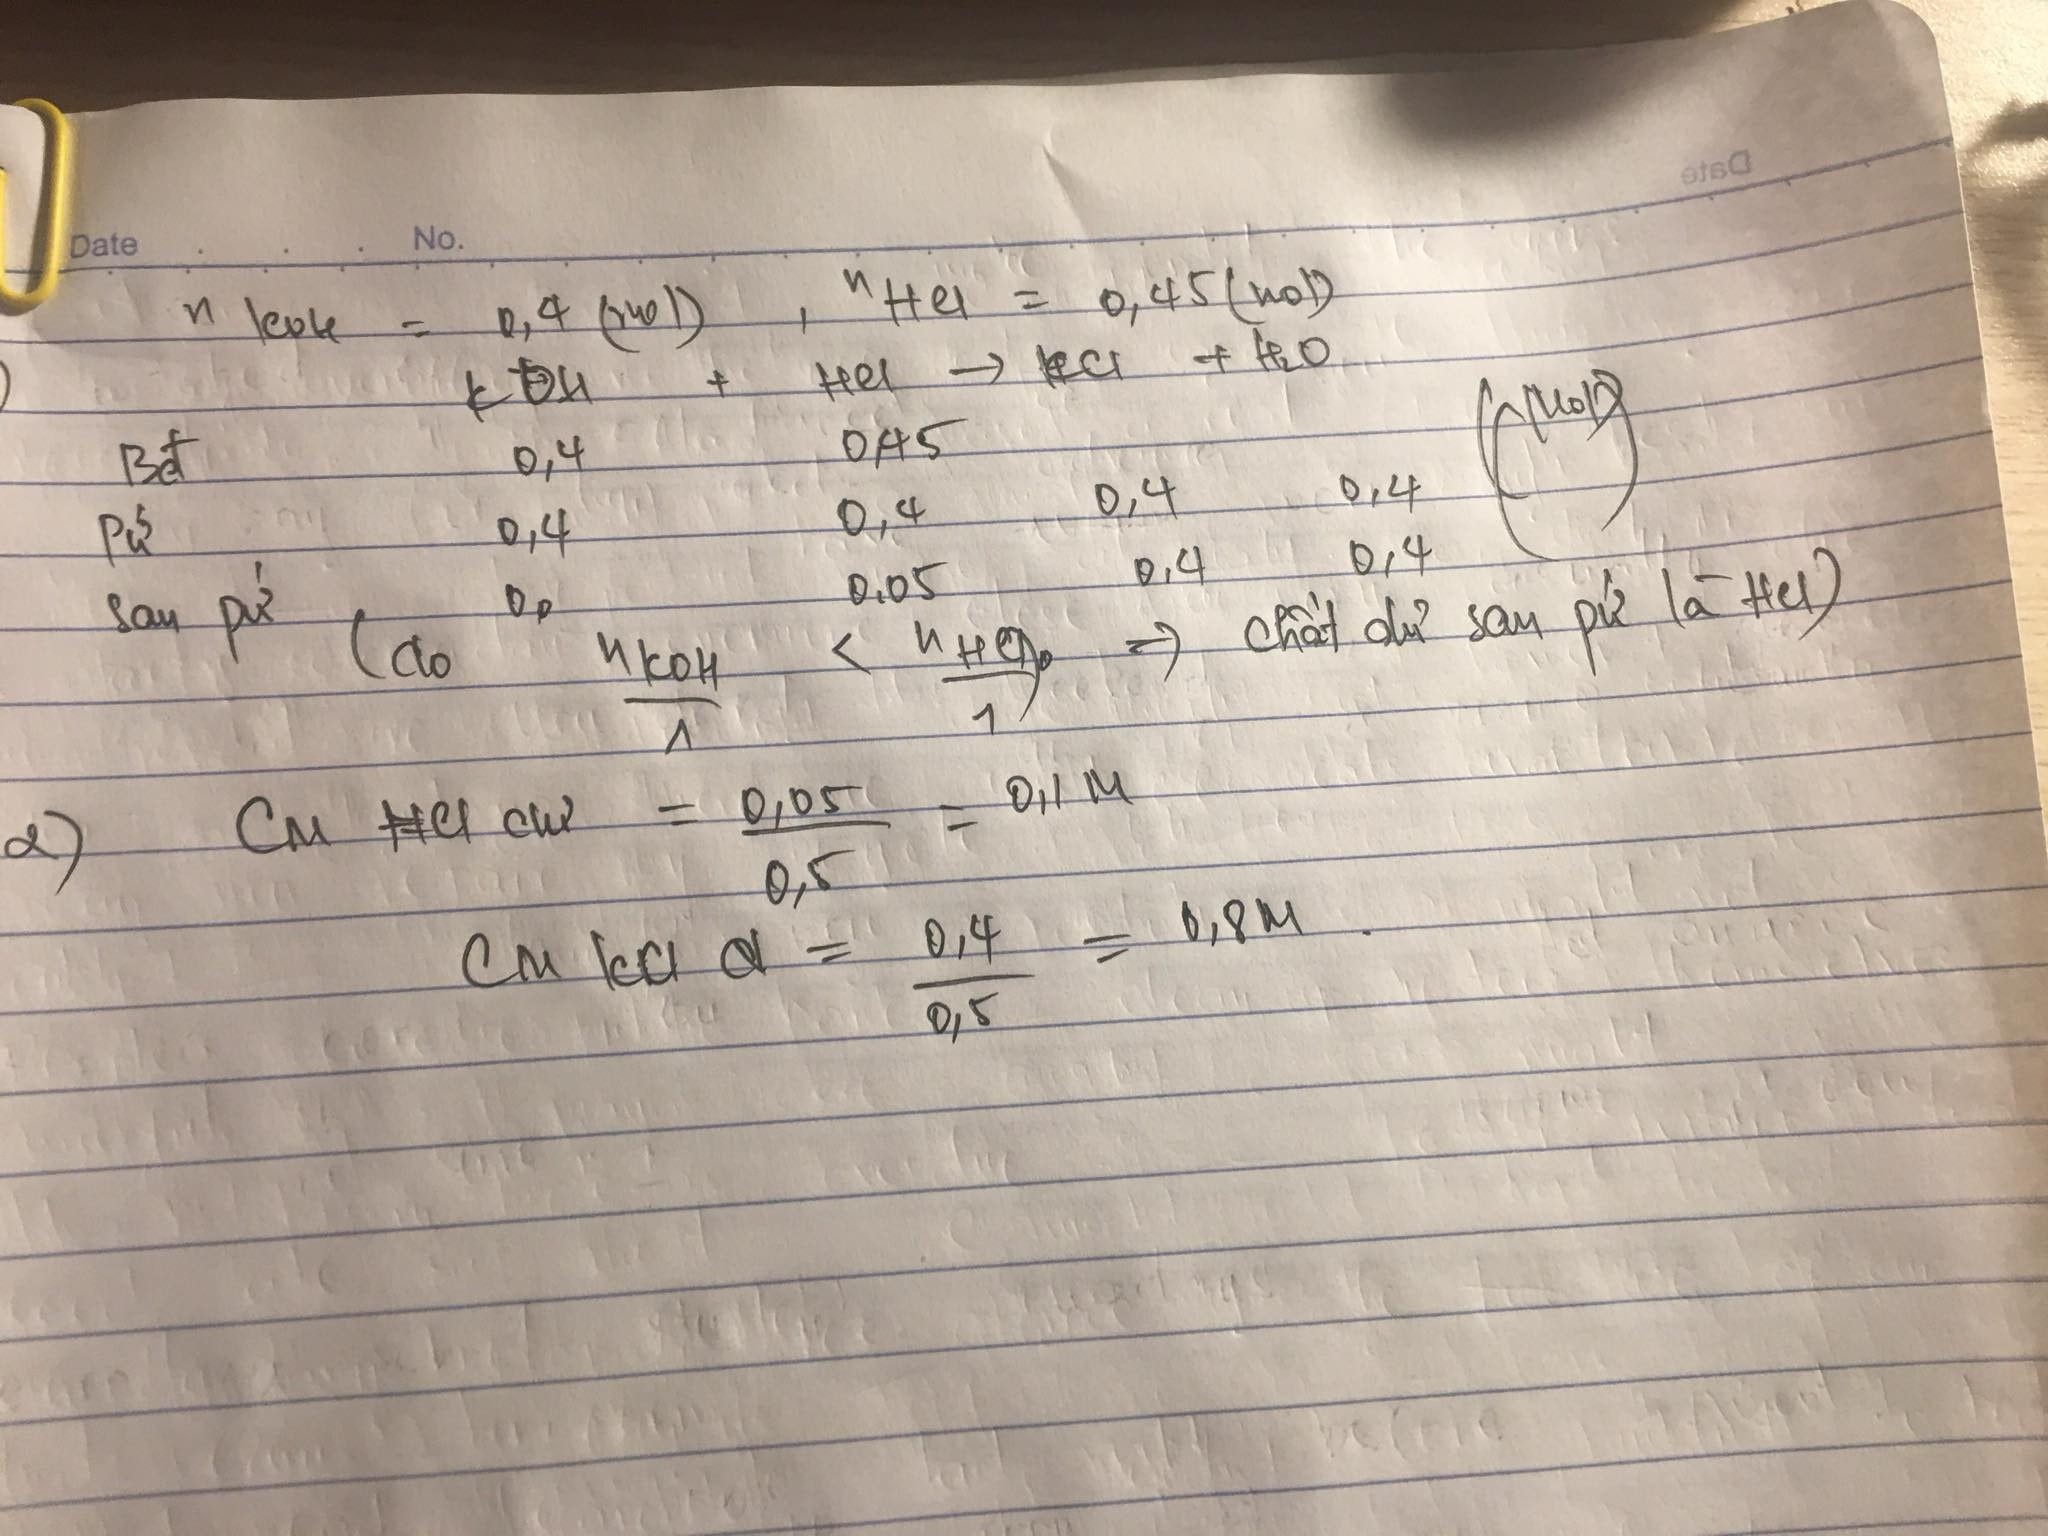 Date No.
Date
n KOH = 0,4 (mol) , n HCl = 0,45 (mol)
)
KOH + HCl → KCl + H2O
Bđ 0,4 0,45 (mol)
Pứ 0,4 0,4 0,4 0,4
sau pứ 0 0,05 0,4 0,4
(do nKOH/1 < nHCl/1 => chất dư sau pứ là HCl)
2) CM HCl dư = 0,05/0,5 = 0,1 M
CM KCl = 0,4/0,5 = 0,8 M.